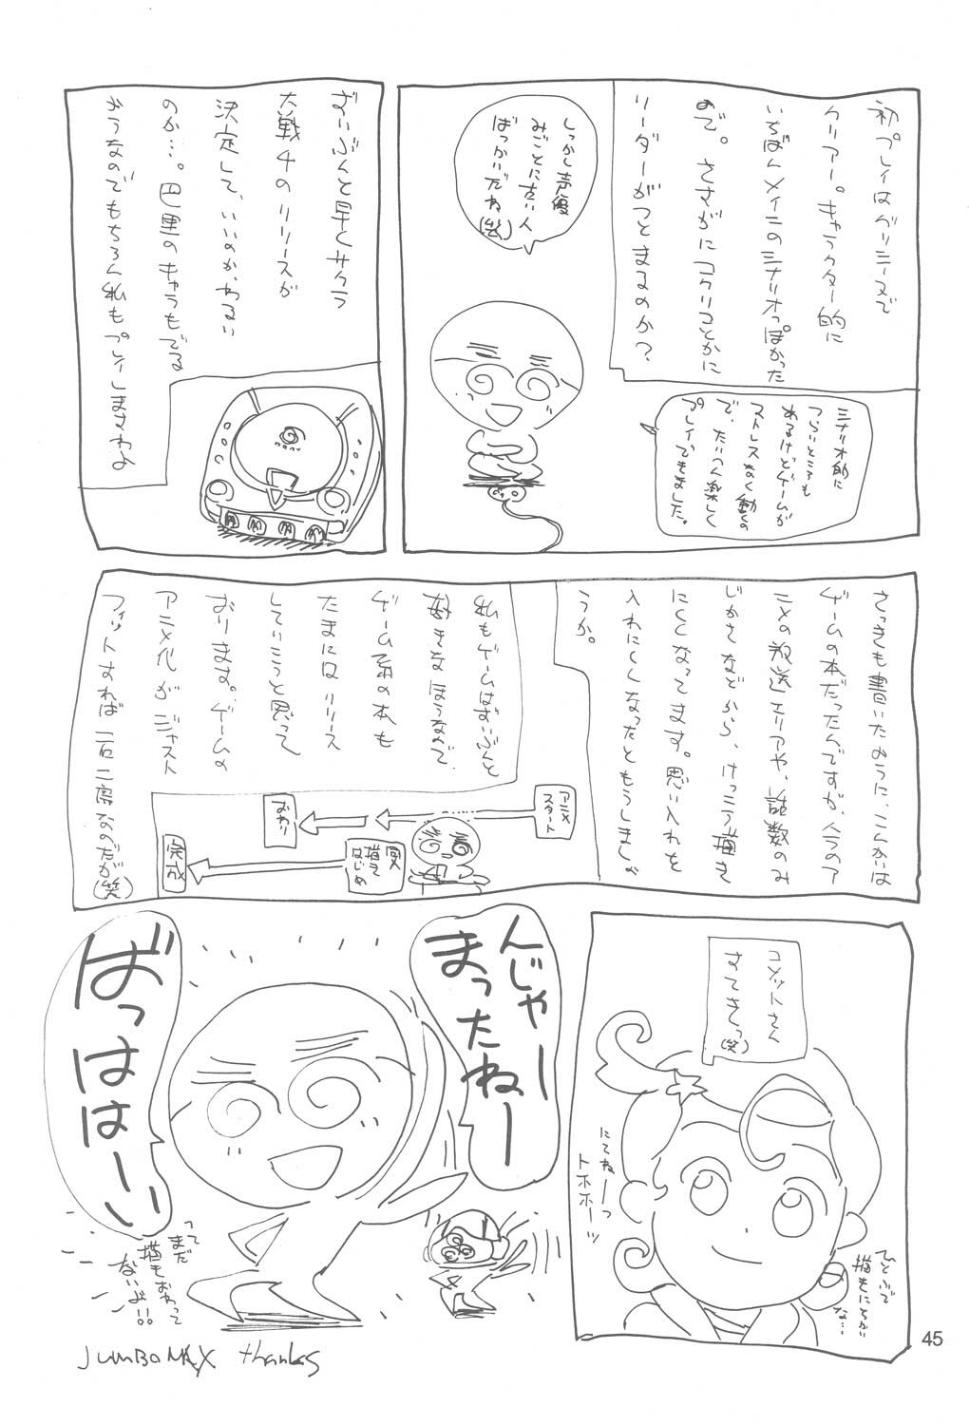 初プレイはグリシーヌで
クリアー。キャラクター的に
いちばんメインのシナリオっぽかった
ので。さすがにコクリコとかに
リーダーがつとまるのか？
シナリオ的に
つらいところも
あるけどゲームが
ストレスなく動くの
で、たいへん楽しく
プレイできました。
しっかし声優
みごとに古い人
ばっかいだね
(笑)
ずいぶんと早くサクラ
大戦4のリリースが
決定して、いいのか、わるい
のか…。巴里のキャラもでる
ようなのでもちろん私もプレイしますわよ
さっきも書いたように、こんかいは
ゲームの本だったんですが、今うのア
ニメの放送エリアや、話数のみ
じかさなどから、けっこう描き
にくくなってます。思い入れを
入れにくくなったともうしましょ
うか。
私もゲームはずいぶんと
好きなほうなんで、
ゲーム系の本も
たまにはリリース
していこうと思って
おります。ゲームの
アニメ化がジャスト
フィットすれば一石二鳥なのだが(笑)
アニメ
スタート
おわり
描き
はじめ
完成
コメットさん
すてきっ(笑)
にてねーっ
トホホーッ
ひとふで
描きにちかい
な…
んじゃー
まったねー
ばっははーい
ってまだ
描きおわって
ないよ!!
JUMBOMAX thanks
45